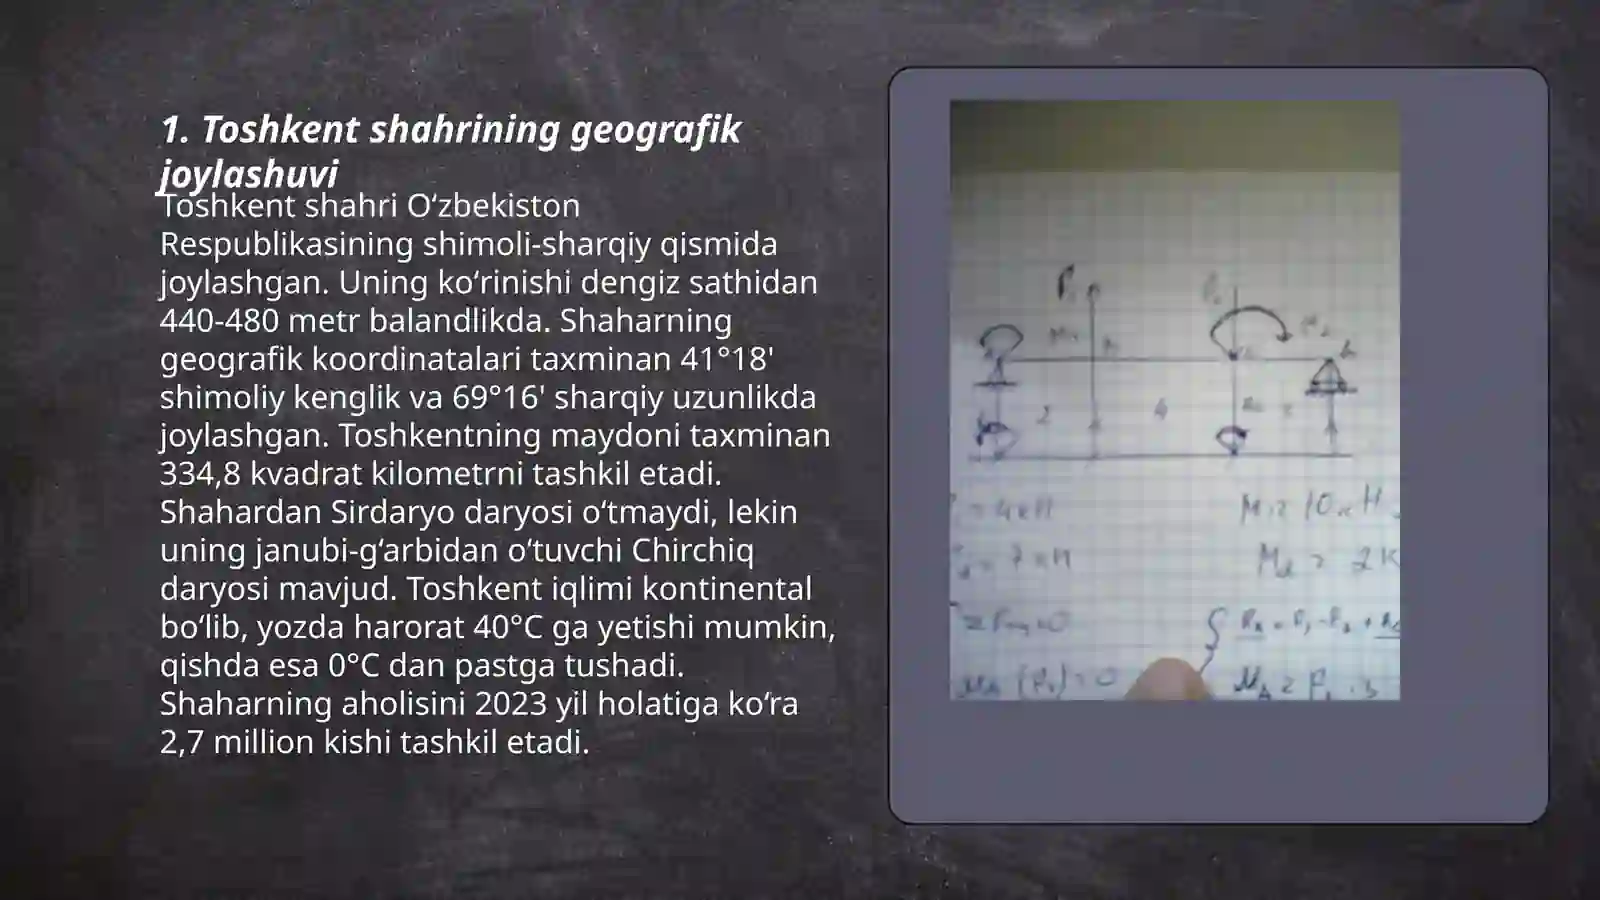 1. Toshkent shahrining geografik
joylashuvi
Toshkent shahri O‘zbekiston
Respublikasining shimoli-sharqiy qismida
joylashgan. Uning ko‘rinishi dengiz sathidan
440-480 metr balandlikda. Shaharning
geografik koordinatalari taxminan 41°18'
shimoliy kenglik va 69°16' sharqiy uzunlikda
joylashgan. Toshkentning maydoni taxminan
334,8 kvadrat kilometrni tashkil etadi.
Shahardan Sirdaryo daryosi o‘tmaydi, lekin
uning janubi-g‘arbidan o‘tuvchi Chirchiq
daryosi mavjud. Toshkent iqlimi kontinental
bo‘lib, yozda harorat 40°C ga yetishi mumkin,
qishda esa 0°C dan pastga tushadi.
Shaharning aholisini 2023 yil holatiga ko‘ra
2,7 million kishi tashkil etadi.
P₁
2
4
= 4кН
= 7кН